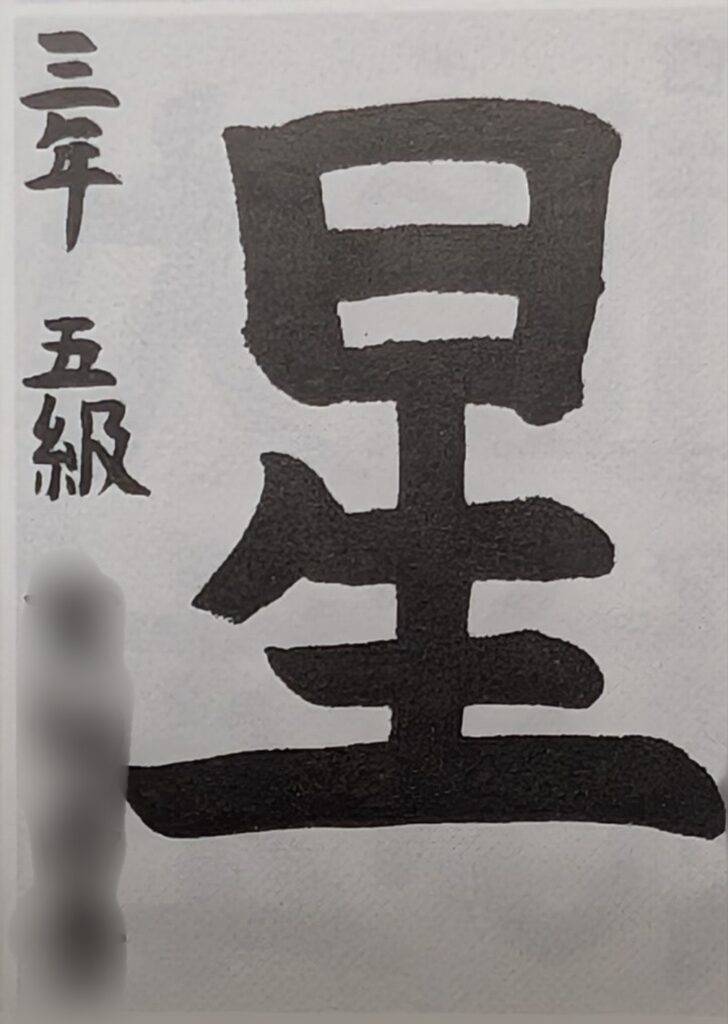 星
三年 五級